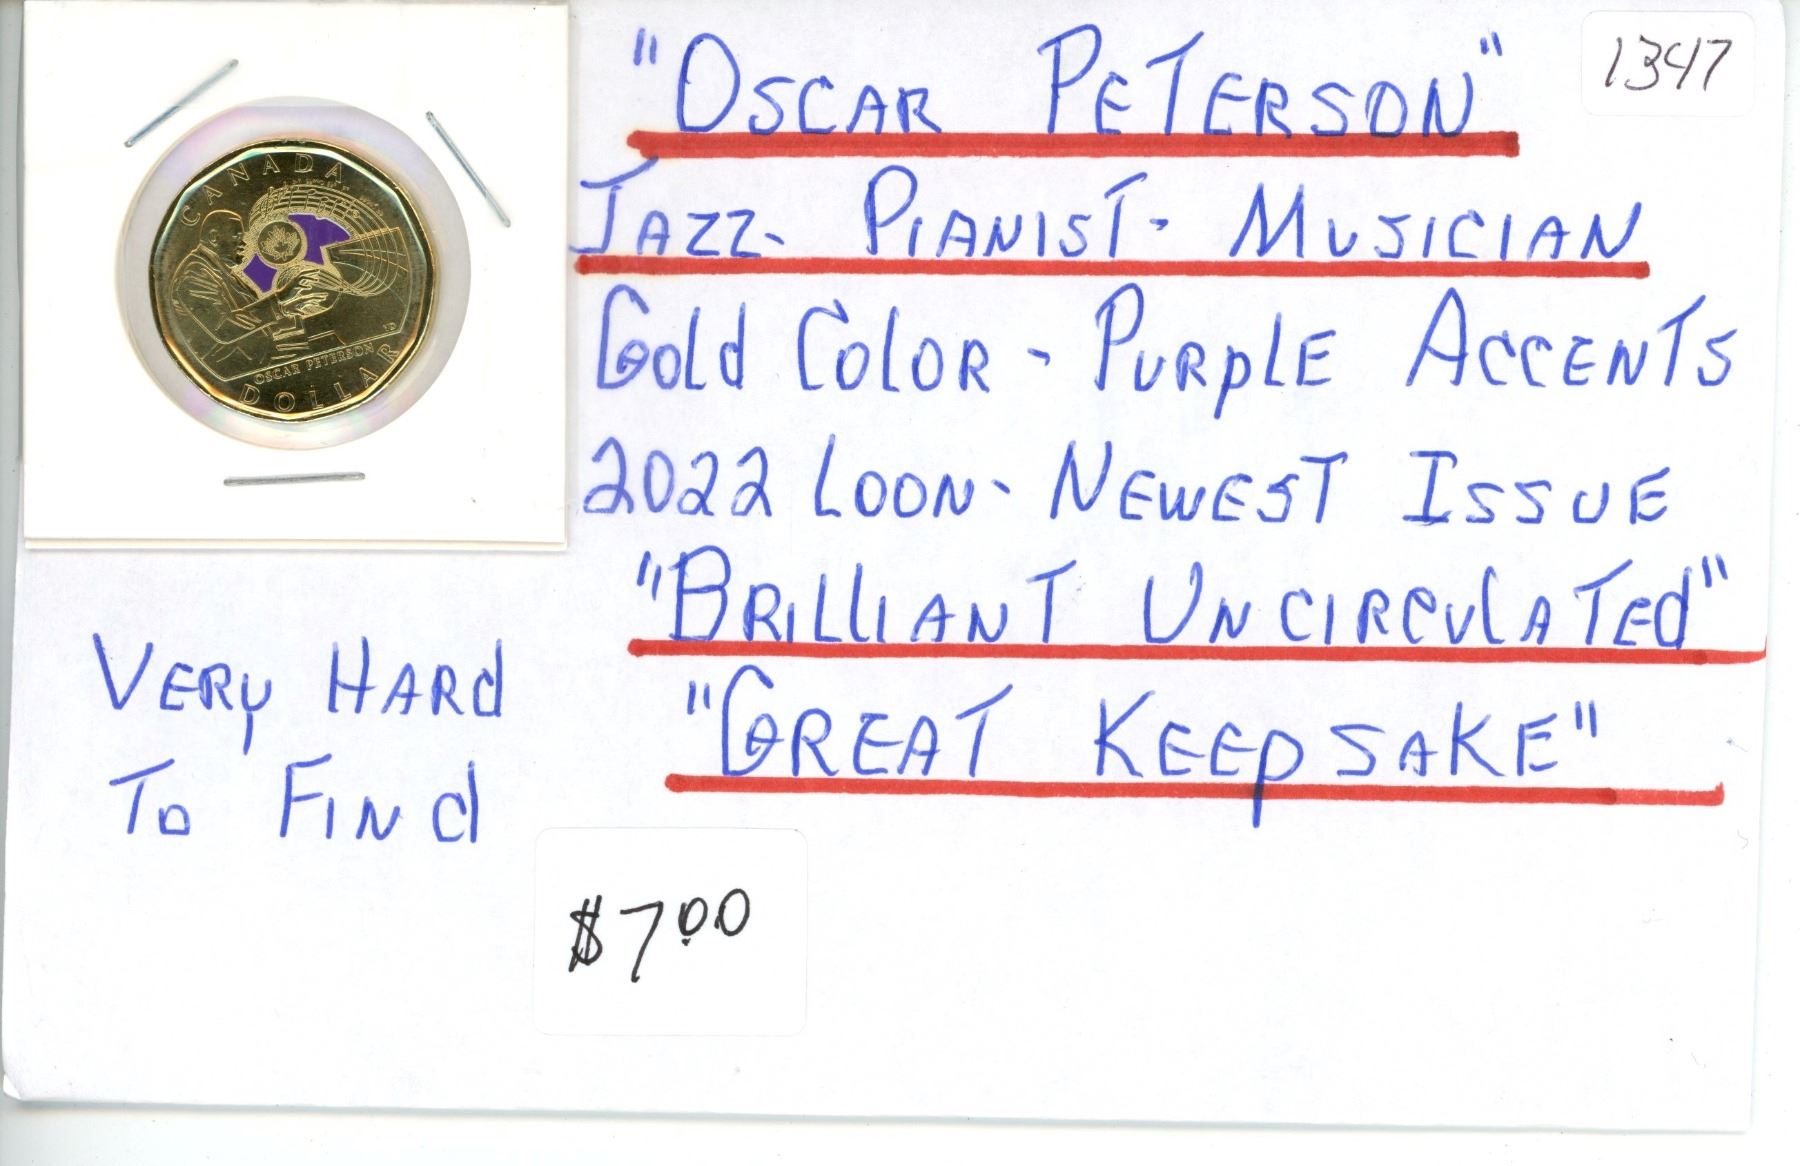 "OSCAR PETERSON"
1347
JAZZ- PIANIST- MUSICIAN
Gold COlOR - PURplE ACCENTS
2022 LOON- NEWEST ISSUE
"BRILLIANT UNCIRCULATEd"
"GREAT KEEpSAKE"
VERy HARd
To FINd
$7.00
CANADA
OSCAR PETERSON
DOLLAR